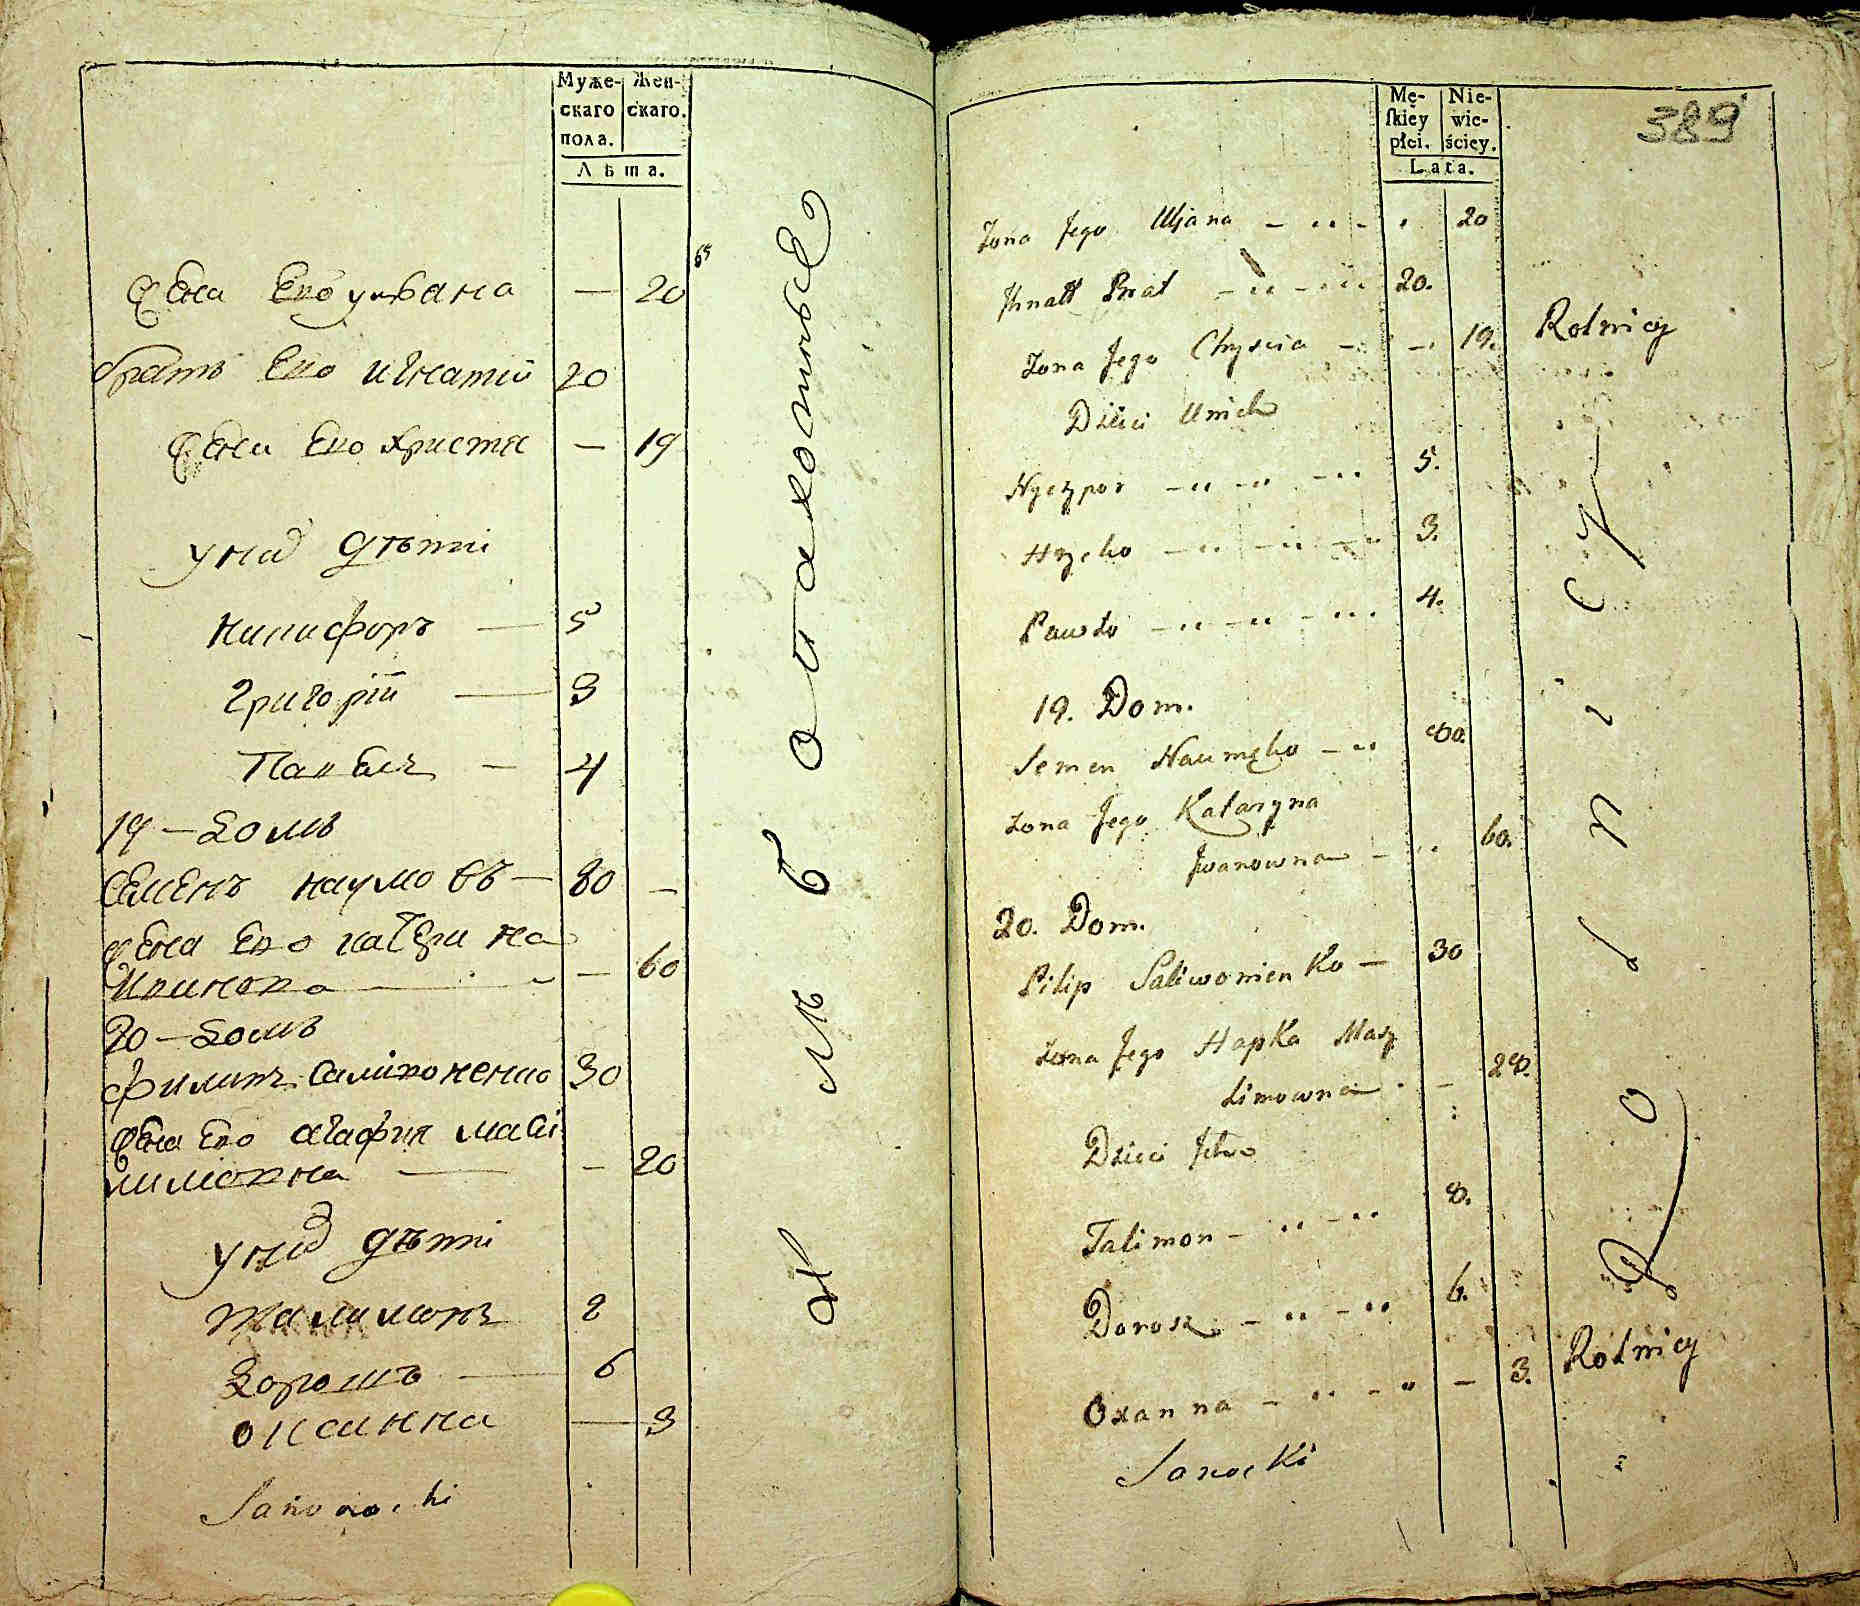 Муже-
скаго
пола.
Жен-
скаго.
Лѣта.
Жена Его уляна — 20
братъ Его игнатій 20
Жена Его христя — 19
у них дѣти
Никифоръ — 5
григорій — 3
Павелъ — 4
19 — домъ
Семенъ наумовъ — 80 —
жена Его катерина
Ивановна — 60
20 — домъ
филипъ Саливоненко 30
жена Его агафия макси
мовна — — 20
у них дѣти
талимонъ 8
дорошъ — 6
оксанна — 3
Sanocki
Мѣ б о пахотные
Mę-
ſkiey
płci.
Nie-
wie-
ściey.
Lata.
389
Żona Jego Uljana 20
Ihnatt Brat 20.
Żona Jego Chryscia 19. Rolnicy
Dzieci Unich
Nyczypor 5.
Hryćko 3.
Pawło 4.
19. Dom.
Semen Naumęko 80.
Żona Jego Katarzyna
Iwanowna 60.
20. Dom.
Pilip Saliwonienko — 30
Żona Jego Hapka Maxy
limowna 28.
Dzieci Jch
Talimon 8.
Dorosz 6.
Oxanna 3. Rolnicy
Sanocki
Rolnicy